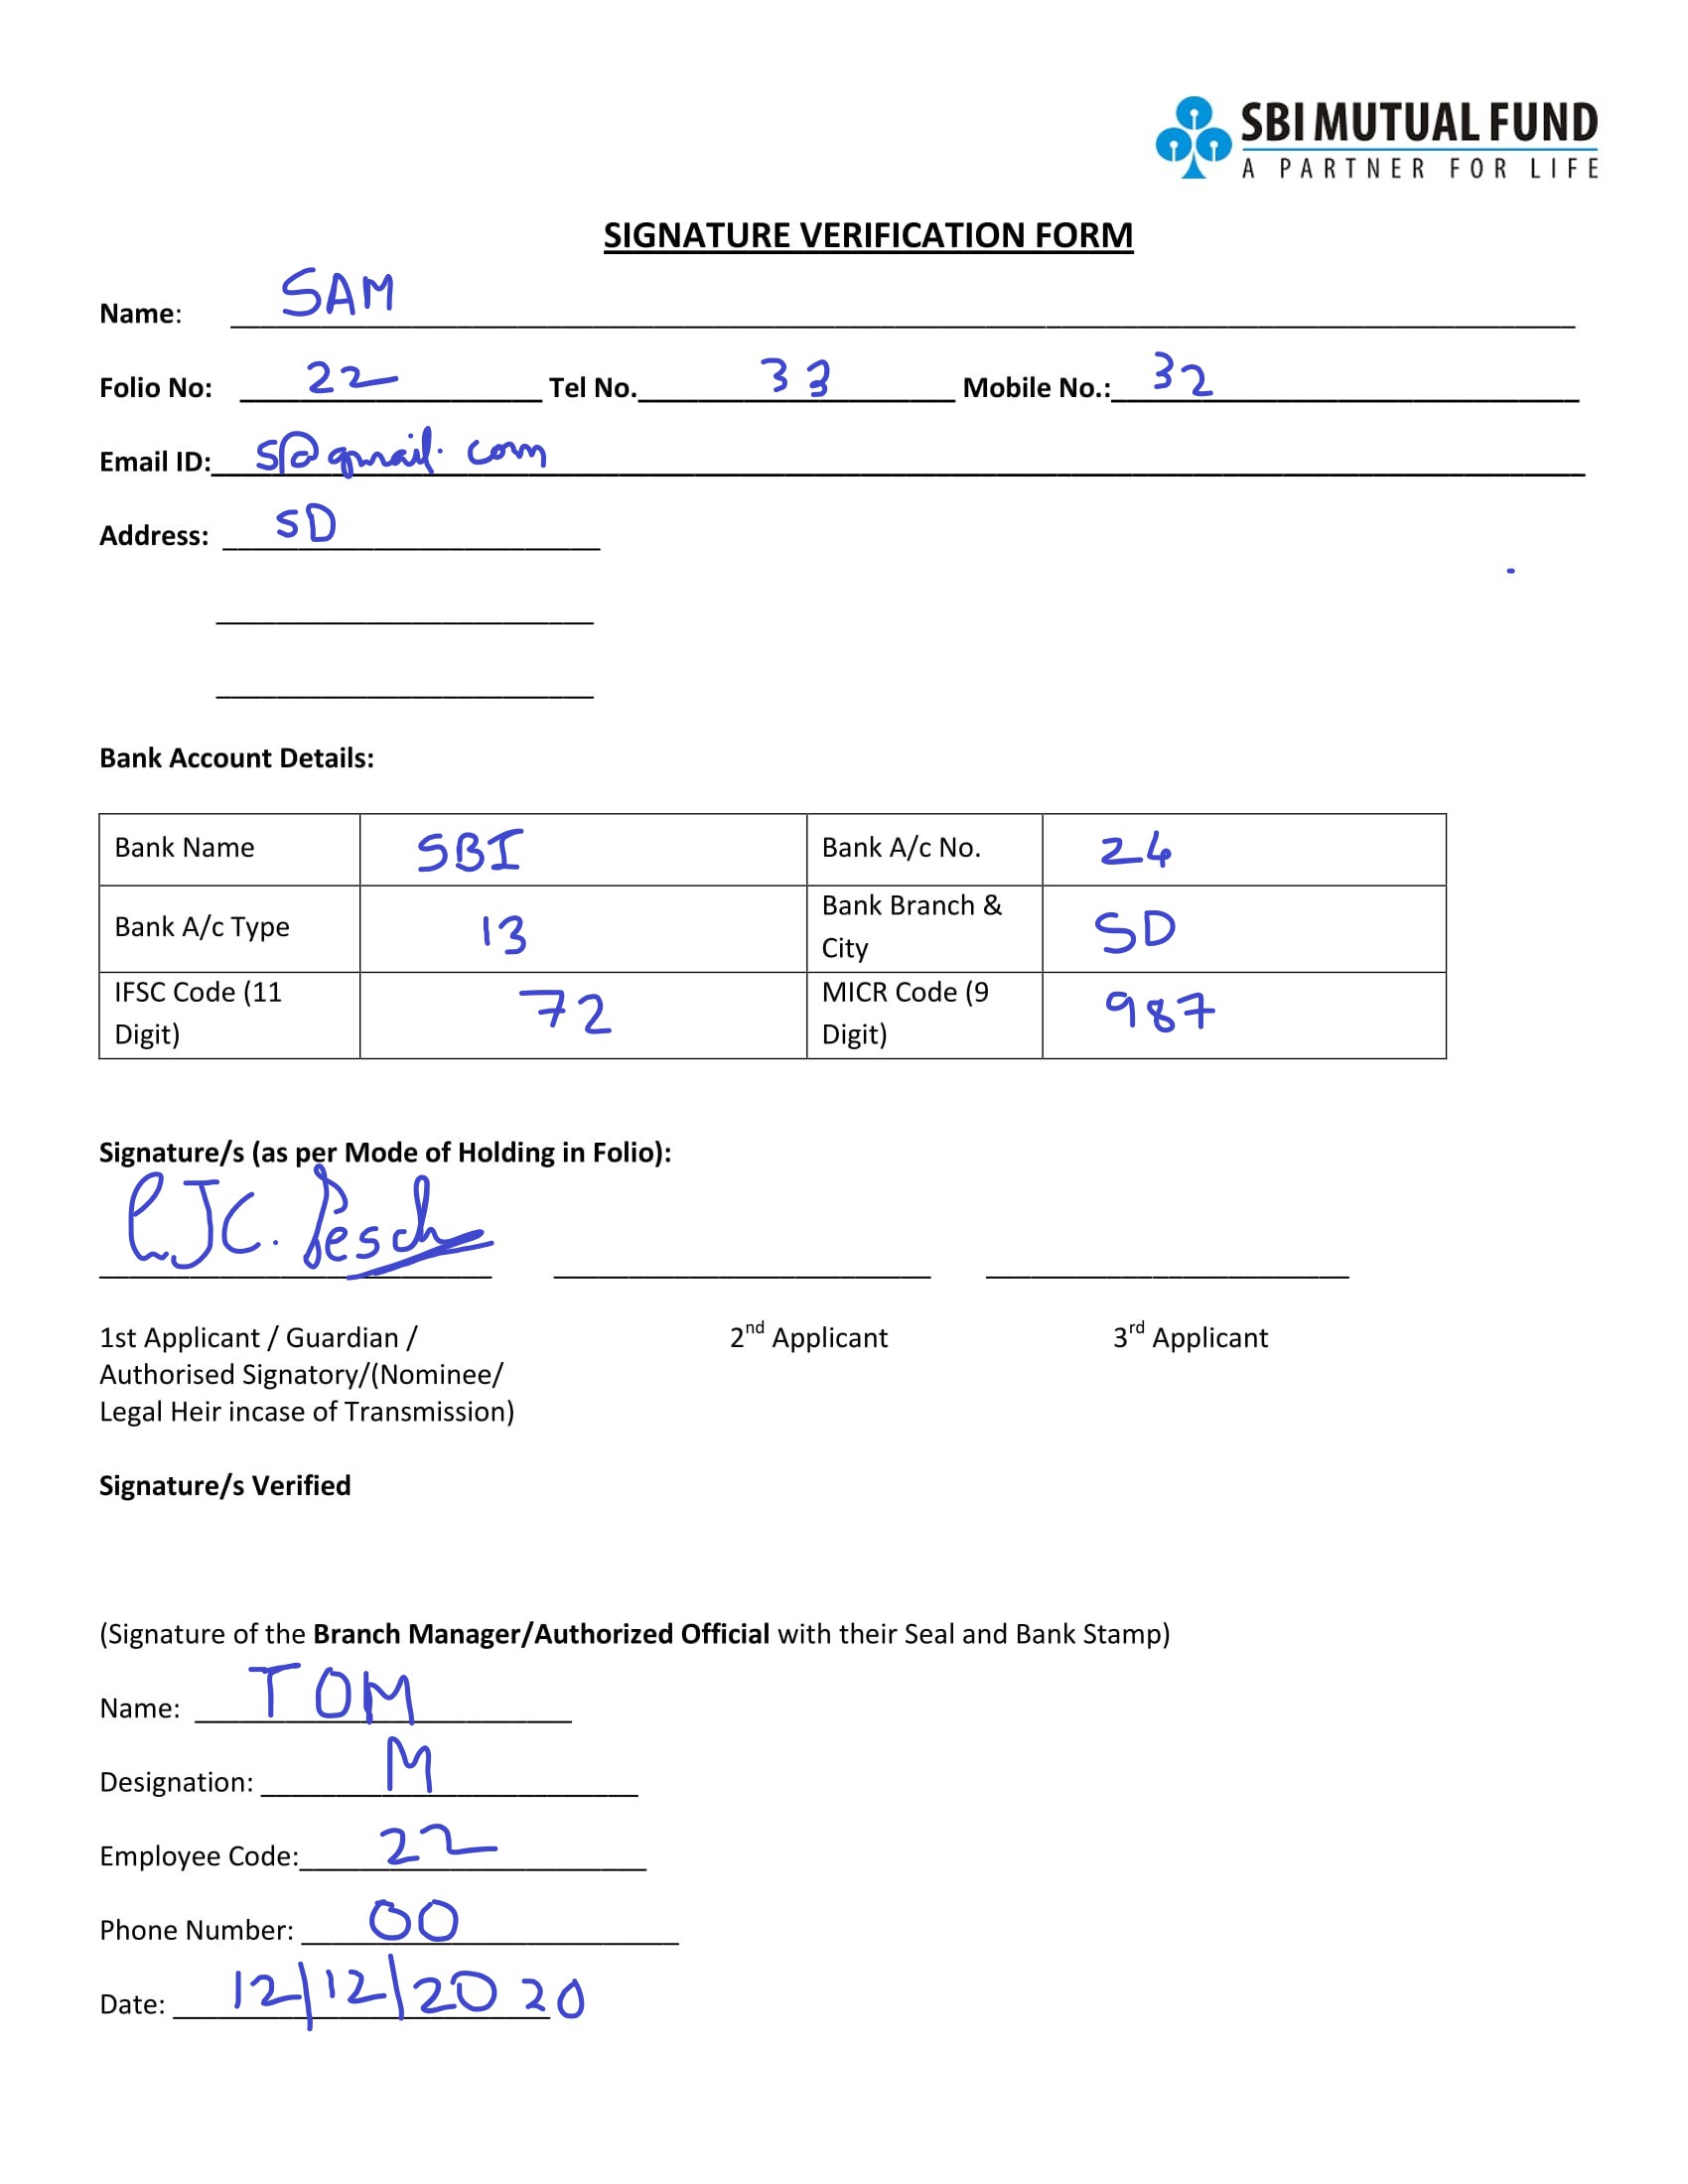 SBI MUTUAL FUND
A PARTNER FOR LIFE
SIGNATURE VERIFICATION FORM
Name: SAM
Folio No: 22 Tel No. 33 Mobile No.: 32
Email ID: s@gmail.com
Address: SD
Bank Account Details:
Bank Name SBI Bank A/c No. 24
Bank A/c Type 13 Bank Branch & City SD
IFSC Code (11 Digit) 72 MICR Code (9 Digit) 987
Signature/s (as per Mode of Holding in Folio):
1st Applicant / Guardian / 2nd Applicant 3rd Applicant
Authorised Signatory/(Nominee/
Legal Heir incase of Transmission)
Signature/s Verified
(Signature of the Branch Manager/Authorized Official with their Seal and Bank Stamp)
Name: TOM
Designation: M
Employee Code: 22
Phone Number: 00
Date: 12/12/2020